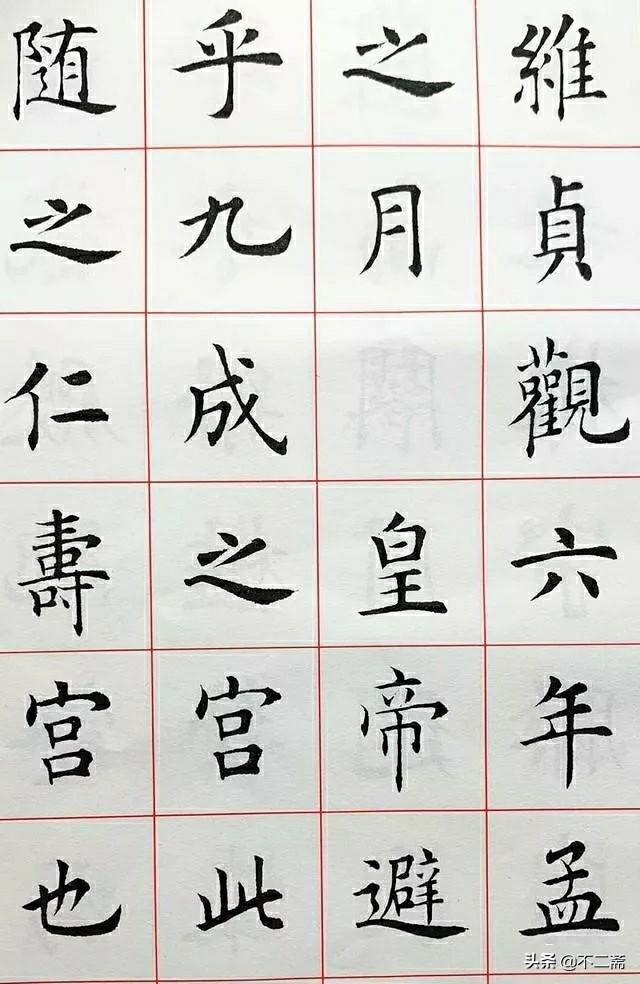 維貞觀六年孟
之月 皇帝避
乎九成之宮此
随之仁壽宮也
头条 @不二斋